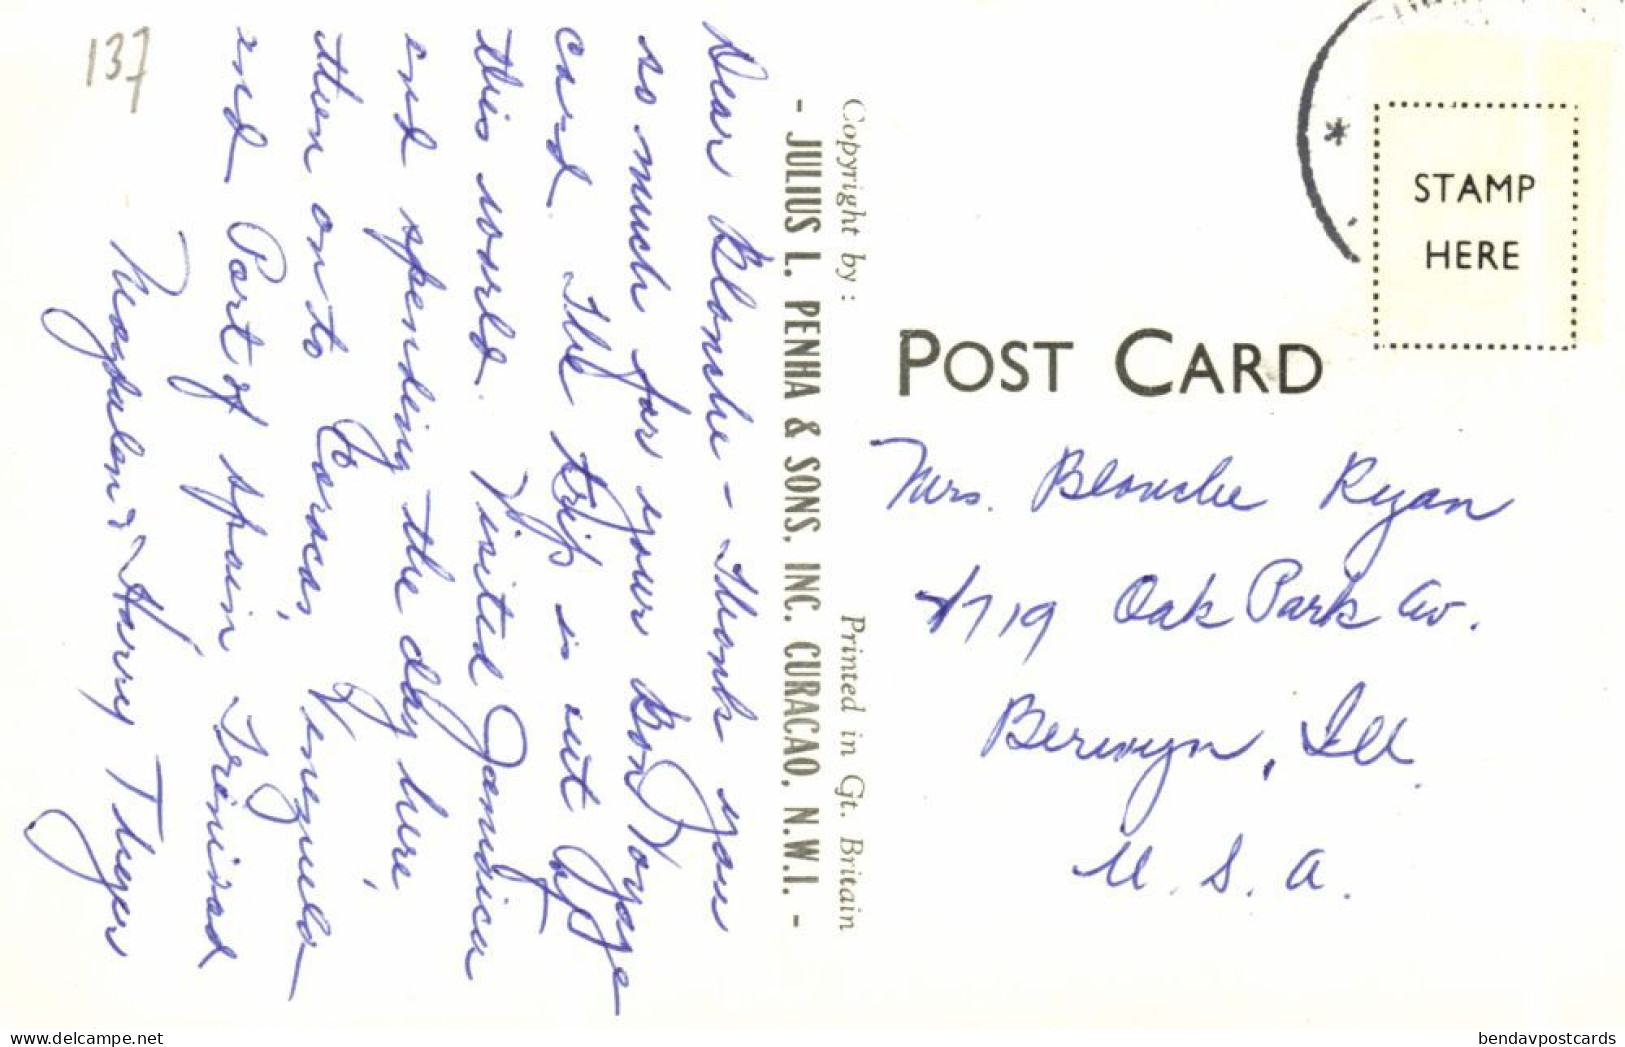 137
Dear Blanche - Thank you
so much for your Bon Voyage
card. The trip is out of
this world. Visited Jamaica
and spending the day here,
then on to Caracas, Venezuela
and Port of Spain Trinidad
Magdalen & Harry Thyer
Copyright by: Printed in Gt. Britain
- JULIUS L. PENHA & SONS, INC. CURACAO. N.W.I. -
STAMP
HERE
POST CARD
Mrs. Blanche Ryan
1719 Oak Park Av.
Berwyn, Ill.
U. S. A.
bendavpostcards